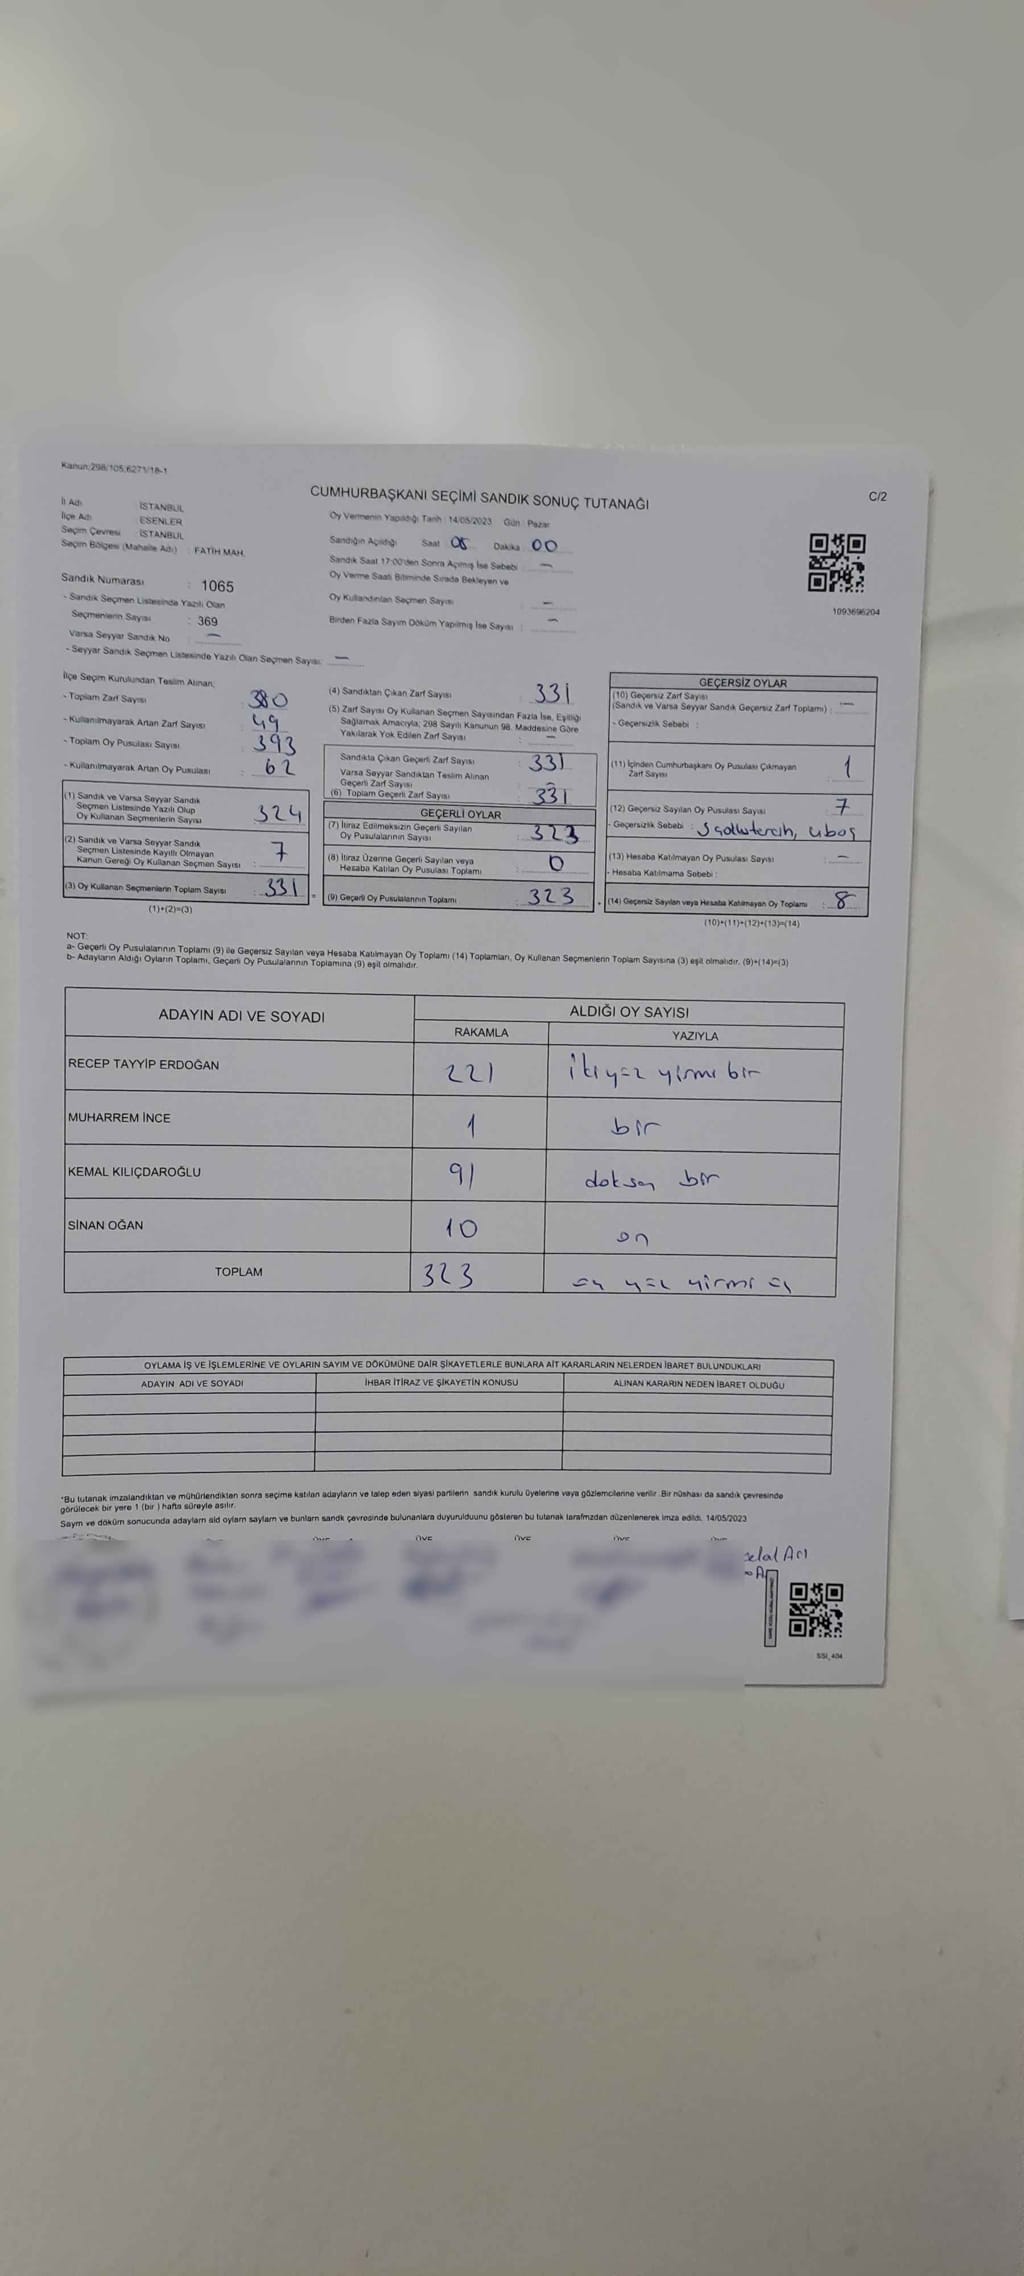 Kanun:298/105,6271/18-1
C/2
CUMHURBAŞKANI SEÇİMİ SANDIK SONUÇ TUTANAĞI
İl Adı : İSTANBUL
İlçe Adı : ESENLER
Seçim Çevresi : İSTANBUL
Seçim Bölgesi (Mahalle Adı) : FATİH MAH.
Oy Vermenin Yapıldığı Tarih : 14/05/2023 Gün : Pazar
Sandığın Açıldığı Saat 08 Dakika 00
Sandık Saat 17:00'den Sonra Açılmış İse Sebebi : —
Oy Verme Saati Bitiminde Sırada Bekleyen ve
Oy Kullandırılan Seçmen Sayısı : —
Birden Fazla Sayım Döküm Yapılmış İse Sayısı : —
1093696204
Sandık Numarası : 1065
- Sandık Seçmen Listesinde Yazılı Olan
Seçmenlerin Sayısı : 369
Varsa Seyyar Sandık No : —
- Seyyar Sandık Seçmen Listesinde Yazılı Olan Seçmen Sayısı: —
İlçe Seçim Kurulundan Teslim Alınan;
- Toplam Zarf Sayısı : 380
- Kullanılmayarak Artan Zarf Sayısı : 49
- Toplam Oy Pusulası Sayısı : 393
- Kullanılmayarak Artan Oy Pusulası : 62
(1) Sandık ve Varsa Seyyar Sandık
Seçmen Listesinde Yazılı Olup
Oy Kullanan Seçmenlerin Sayısı : 324
(2) Sandık ve Varsa Seyyar Sandık
Seçmen Listesinde Kayıtlı Olmayan
Kanun Gereği Oy Kullanan Seçmen Sayısı : 7
(3) Oy Kullanan Seçmenlerin Toplam Sayısı : 331
(1)+(2)=(3)
(4) Sandıktan Çıkan Zarf Sayısı : 331
(5) Zarf Sayısı Oy Kullanan Seçmen Sayısından Fazla İse, Eşitliği
Sağlamak Amacıyla, 298 Sayılı Kanunun 98. Maddesine Göre
Yakılarak Yok Edilen Zarf Sayısı : —
Sandıkta Çıkan Geçerli Zarf Sayısı : 331
Varsa Seyyar Sandıktan Teslim Alınan
Geçerli Zarf Sayısı : —
(6) Toplam Geçerli Zarf Sayısı : 331
GEÇERLİ OYLAR
(7) İtiraz Edilmeksizin Geçerli Sayılan
Oy Pusulalarının Sayısı : 323
(8) İtiraz Üzerine Geçerli Sayılan veya
Hesaba Katılan Oy Pusulası Toplamı : 0
(9) Geçerli Oy Pusulalarının Toplamı : 323
GEÇERSİZ OYLAR
(10) Geçersiz Zarf Sayısı
(Sandık ve Varsa Seyyar Sandık Geçersiz Zarf Toplamı) : —
- Geçersizlik Sebebi :
(11) İçinden Cumhurbaşkanı Oy Pusulası Çıkmayan
Zarf Sayısı : 1
(12) Geçersiz Sayılan Oy Pusulası Sayısı : 7
- Geçersizlik Sebebi :
(13) Hesaba Katılmayan Oy Pusulası Sayısı : —
- Hesaba Katılmama Sebebi :
(14) Geçersiz Sayılan veya Hesaba Katılmayan Oy Toplamı : 8
(10)+(11)+(12)+(13)=(14)
NOT:
a- Geçerli Oy Pusulalarının Toplamı (9) ile Geçersiz Sayılan veya Hesaba Katılmayan Oy Toplamı (14) Toplamları, Oy Kullanan Seçmenlerin Toplam Sayısına (3) eşit olmalıdır. (9)+(14)=(3)
b- Adayların Aldığı Oyların Toplamı, Geçerli Oy Pusulalarının Toplamına (9) eşit olmalıdır.
ADAYIN ADI VE SOYADI
ALDIĞI OY SAYISI
RAKAMLA YAZIYLA
RECEP TAYYİP ERDOĞAN 221 iki yüz yirmi bir
MUHARREM İNCE 1 bir
KEMAL KILIÇDAROĞLU 91 doksan bir
SİNAN OĞAN 10 on
TOPLAM 323 üç yüz yirmi üç
OYLAMA İŞ VE İŞLEMLERİNE VE OYLARIN SAYIM VE DÖKÜMÜNE DAİR ŞİKAYETLERLE BUNLARA AİT KARARLARIN NELERDEN İBARET BULUNDUKLARI
ADAYIN ADI VE SOYADI İHBAR İTİRAZ VE ŞİKAYETİN KONUSU ALINAN KARARIN NEDEN İBARET OLDUĞU
*Bu tutanak imzalandıktan ve mühürlendikten sonra seçime katılan adayların ve talep eden siyasi partilerin sandık kurulu üyelerine veya gözlemcilerine verilir. Bir nüshası da sandık çevresinde
görülecek bir yere 1 (bir) hafta süreyle asılır.
Sayım ve döküm sonucunda adayların ald oyların sayların ve bunların sandk çevresinde bulunanlara duyurulduunu gösteren bu tutanak tarafmzdan düzenlenerek imza edildi. 14/05/2023
SSI_404